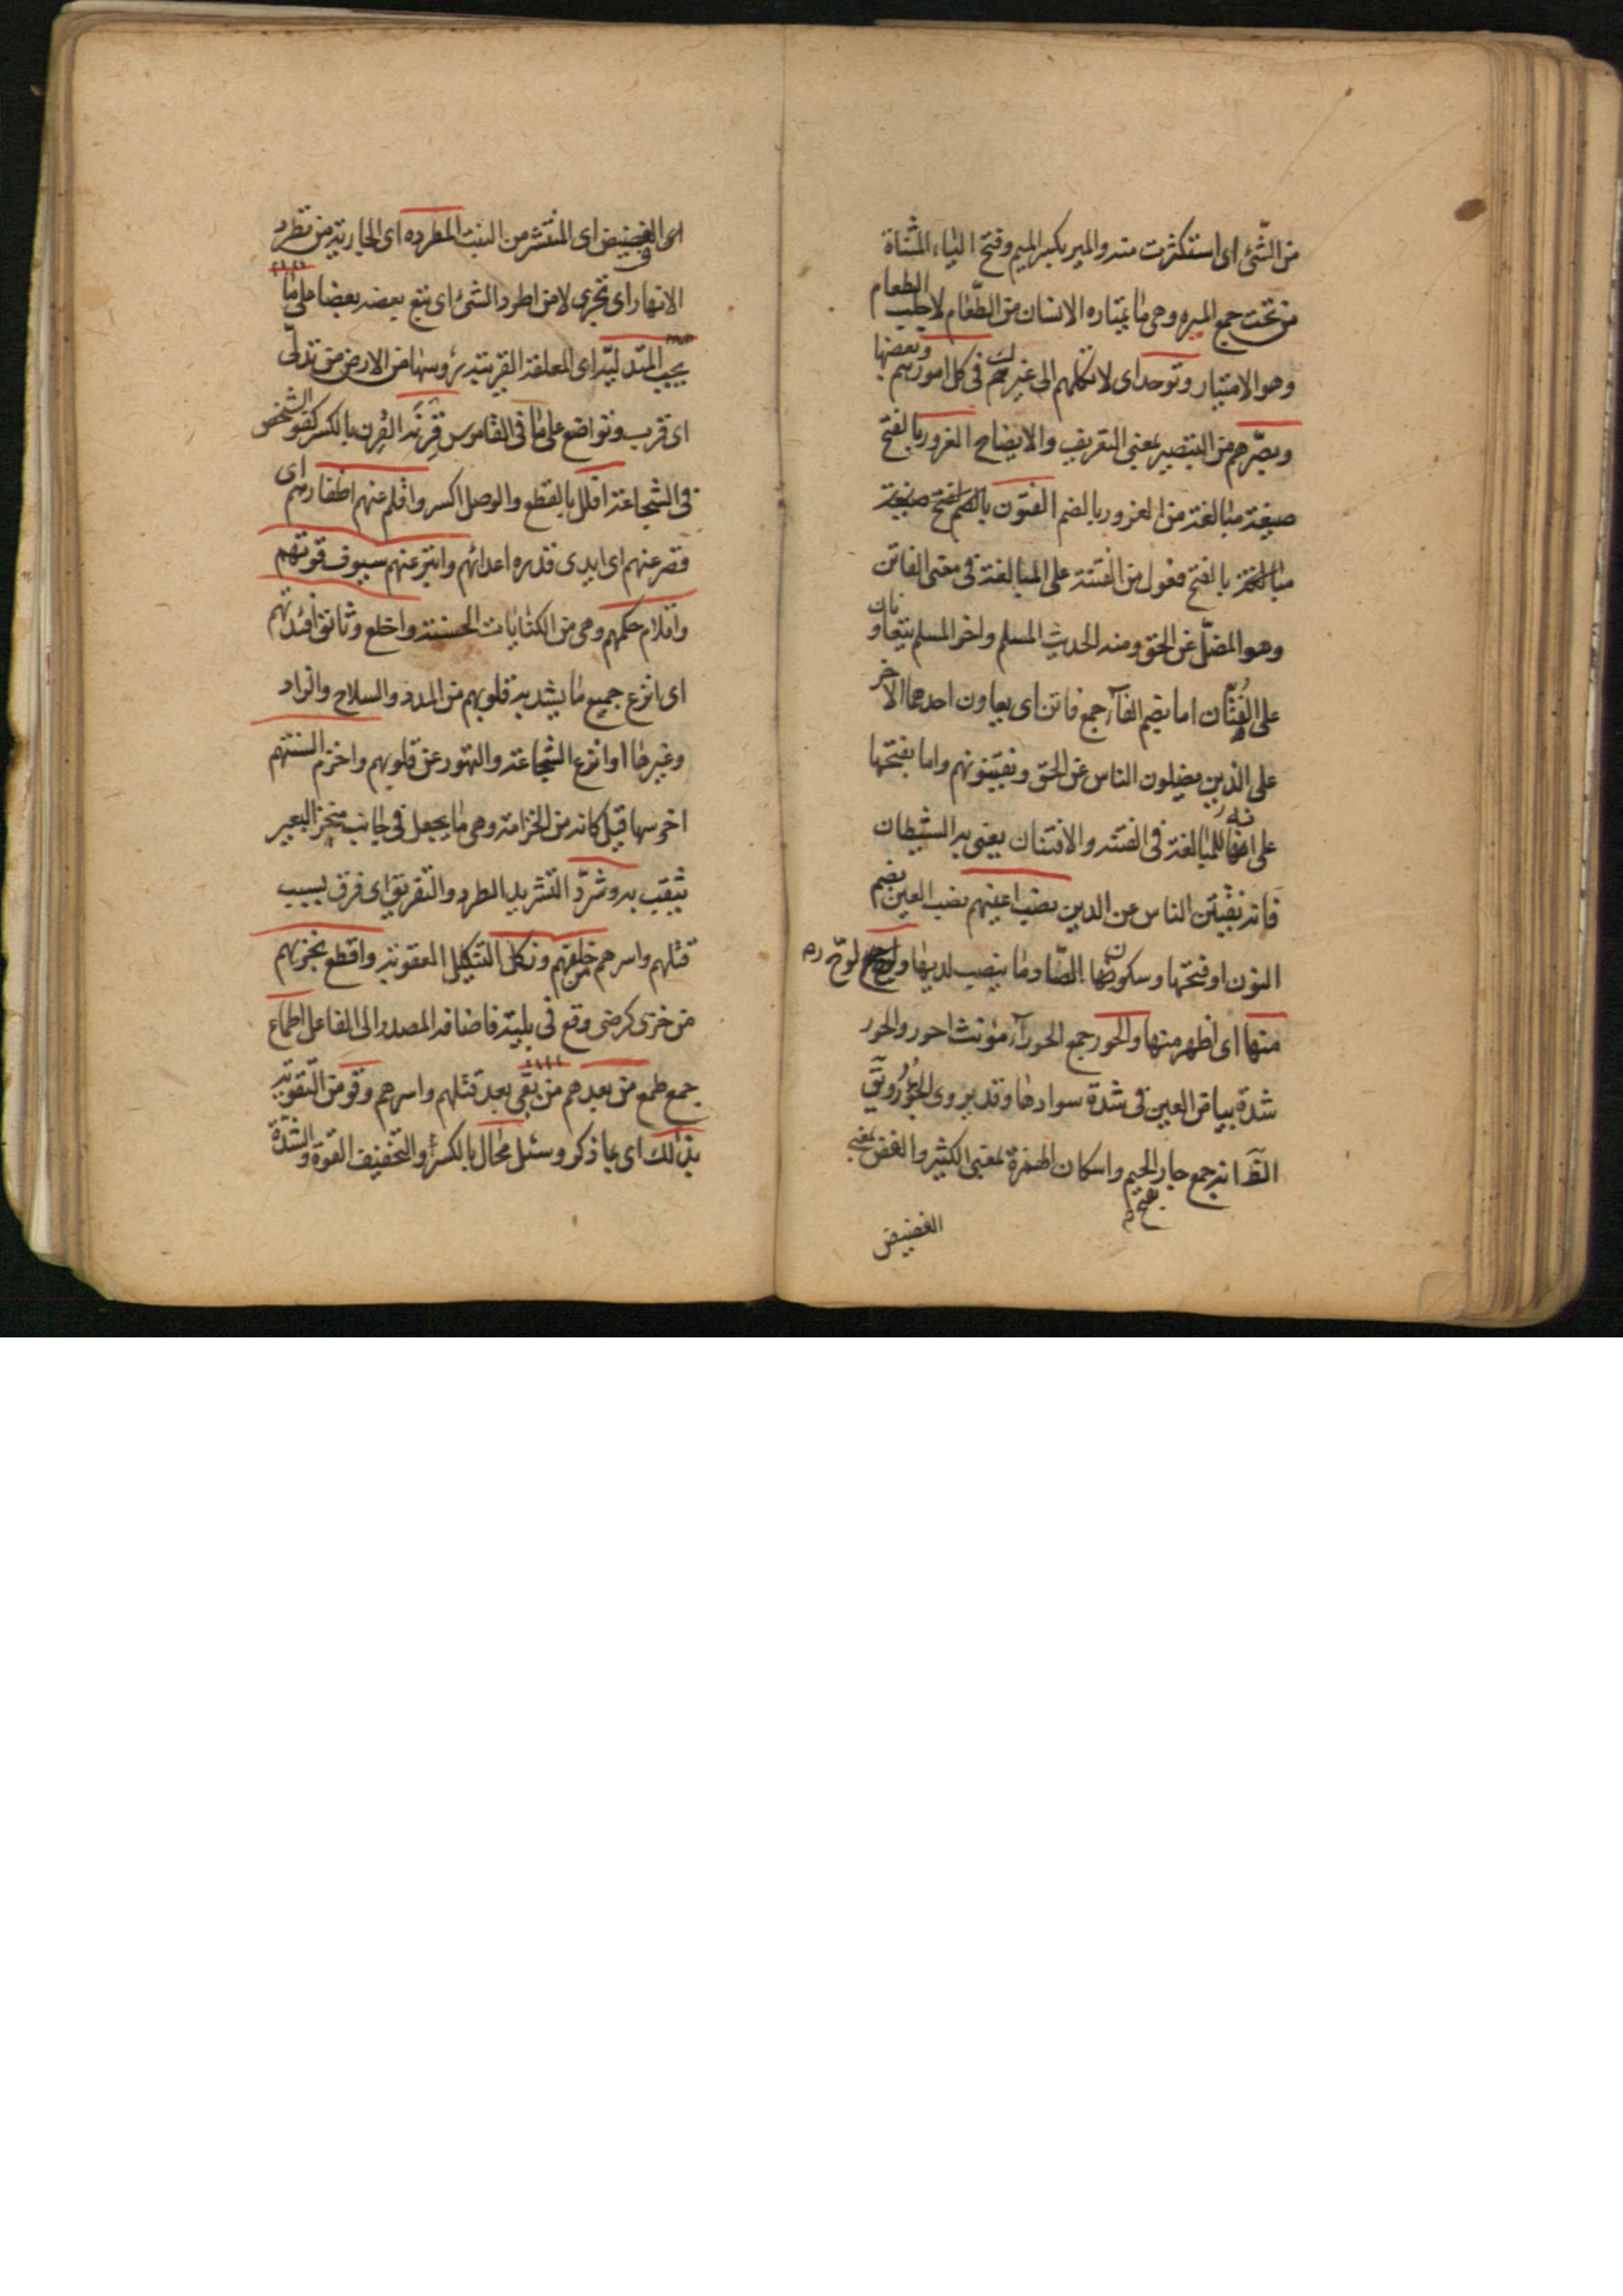 من الشّئ اى استكثرت منه والمير بكسر الميم وفتح الياء المثناة
من تحت جمع الميره وهى ما يمتاره الانسان من الطّعام لاجلب الطعام
وهو الامتيار وتوحد اى لا تكلهم الى غيرك فى كل امورهم وبعضها
وبصّرهم من التبصير بمعنى التعريف والايضاح الغرور بالفتح
صيغة مبالغة من الغرور بالضم الفتون بالفتح صيغة
مبالغة بالفتح فعول من الفتنة على المبالغة فى معنى الفاتن
وهو المضلّ عن الحق ومنه الحديث المسلم واخو المسلم يتعاونان
على الفُتّان اما بضم الفآء جمع فاتن اى يعاون احدهما الآخر
على الذين يضلون الناس عن الحق ويفتنونهم واما بفتحها
على انه للمبالغة فى الفتنه والافتنان يعنى به الشيطان
فانه يفتن الناس عن الدين نصب اعينهم نصب العين بضم
النون او فتحها وسكون الصّاد وما ينصب لديها ولوّح
منها اى اظهر منها والحور جمع الحورآء مؤنث احور والحور
شدة بياض العين فى شدة سوادها وقد يروى الجؤر وفى
انه جمع جار بفتح الجيم واسكان الهمزة بمعنى الكثير والغض بمعنى
الغضيض
اى الغضيض اى المنتشر من النبت المطرده اى الجاريه من تطرد
الانهار اى تجرى لا من اطرد الشئ اى تبع بعضه بعضا على ما
يجب المتدليّه اى المعلقة القريبة رؤسها من الارض من تدلّى
اى قرب وتواضع على ما فى القاموس قِرنه القِرن بالكسر كفو الشخص
فى الشجاعة افلل بالقطع والوصل اكسر واقلم عنهم اظفارهم اى
قصر عنهم اى ايدى قدره اعدائهم وابتز عنهم سيوف قوتهم
واقلام حكمهم وهى من الكنايات الحسنة واخلع وثائق افئدتهم
اى انزع جميع ما يشد به قلوبهم من المدد والسلاح والزاد
وغيرها او انزع الشجاعة والتهور عن قلوبهم واخزم السنتهم
اخرسها قيل كانه من الخزامة وهى ما يجعل فى جانب منخر البعير
يثقب به وشرّد التشريد الطرد والتفريق اى فرق بسبب
قتلهم واسرهم من خلفهم ونكل التنكيل العقوبة واقطع بخزيهم
من خزى كرضى وقع فى بليّة فاضافه المصدر الى الفاعل اطماع
جمع طمع من بعدهم من بقى بعد قتلهم واسرهم وقو من التقوية
بذلك اى بما ذكر وسئل محال بالكسر والتخفيف القوة والشدّة